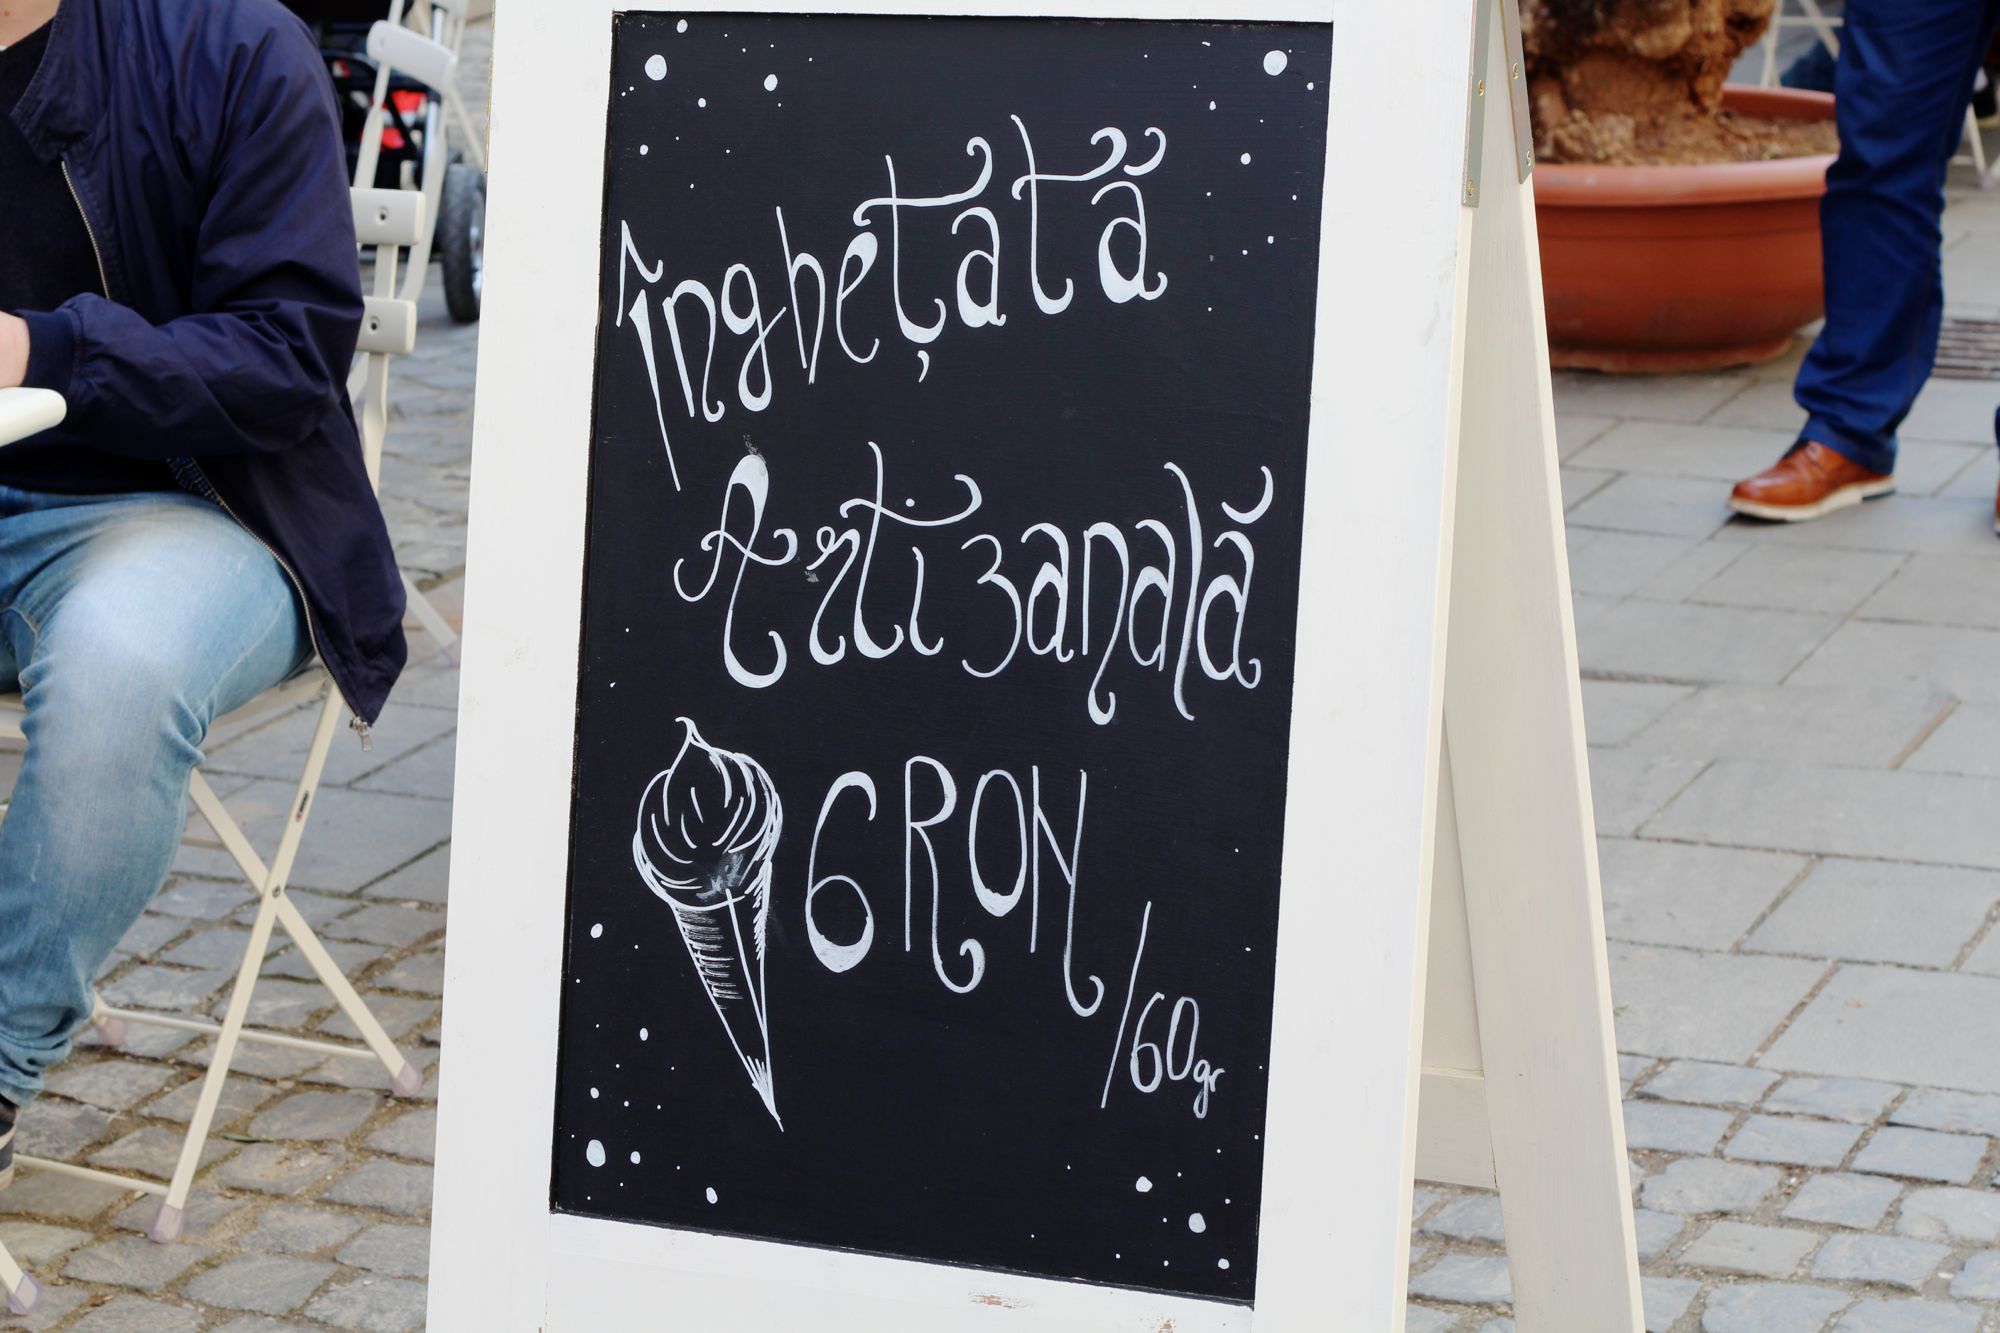 Înghețată
Artizanală
6 RON
/60gr